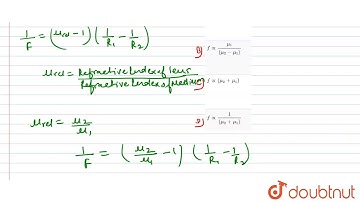 1/F = (μrel - 1) (1/R1 - 1/R2)
μrel = Refractive Index of lens / Refractive Index of Medium
μrel = μ2/μ1
1/F = (μ2/μ1 - 1) (1/R1 - 1/R2)
doubtnut